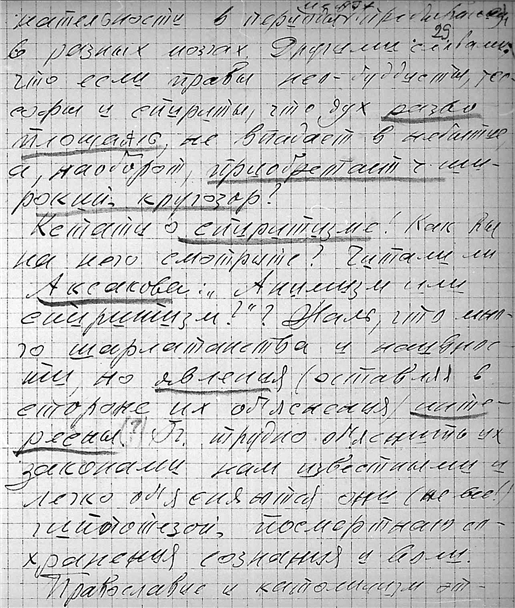 нательности в
29
в разных мозгах Другими словами:
что если правы нео-буддисты, тео-
софы и спириты, что дух разво
площаясь, не впадает в небытие
а, наоборот, приобретает ши-
рокий кругозор?
Кстати о спиритизме! Как Вы
на него смотрите? Читали ли
Аксакова: „Анимизм или
спиритизм?"? Жаль, что мно-
го шарлатанства и наивнос-
ти, но явления (оставляя в
стороне их объяснения) инте-
ресны (?) трудно объяснить их
законами нам известными и
легко объясняются они (не все!)
гипотезой посмертного со-
хранения сознания и воли.
Православие и католицизм от-